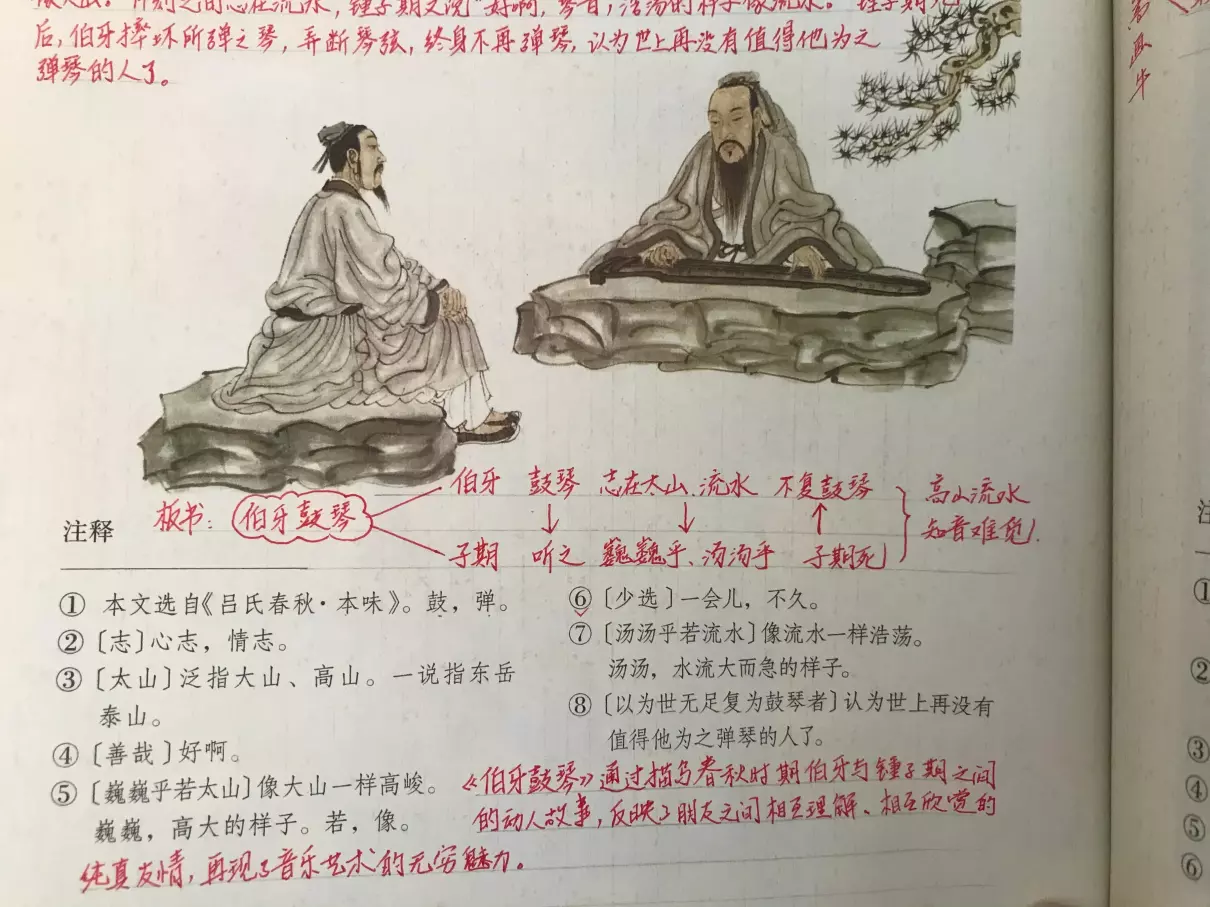 后，伯牙摔坏所弹之琴，弄断琴弦，终身不再弹琴，认为世上再没有值得他为之
弹琴的人了。
伯牙 鼓琴 志在太山、流水 不复鼓琴
板书：伯牙鼓琴
子期 听之 巍巍乎、汤汤乎 子期死
高山流水
知音难觅！
注释
① 本文选自《吕氏春秋·本味》。鼓，弹。
②〔志〕心志，情志。
③〔太山〕泛指大山、高山。一说指东岳
泰山。
④〔善哉〕好啊。
⑤〔巍巍乎若太山〕像大山一样高峻。
巍巍，高大的样子。若，像。
⑥〔少选〕一会儿，不久。
⑦〔汤汤乎若流水〕像流水一样浩荡。
汤汤，水流大而急的样子。
⑧〔以为世无足复为鼓琴者〕认为世上再没有
值得他为之弹琴的人了。
《伯牙鼓琴》通过描写春秋时期伯牙与锺子期之间
的动人故事，反映了朋友之间相互理解、相互欣赏的
纯真友情，再现了音乐艺术的无穷魅力。
注
①
②
③
④
⑤
⑥